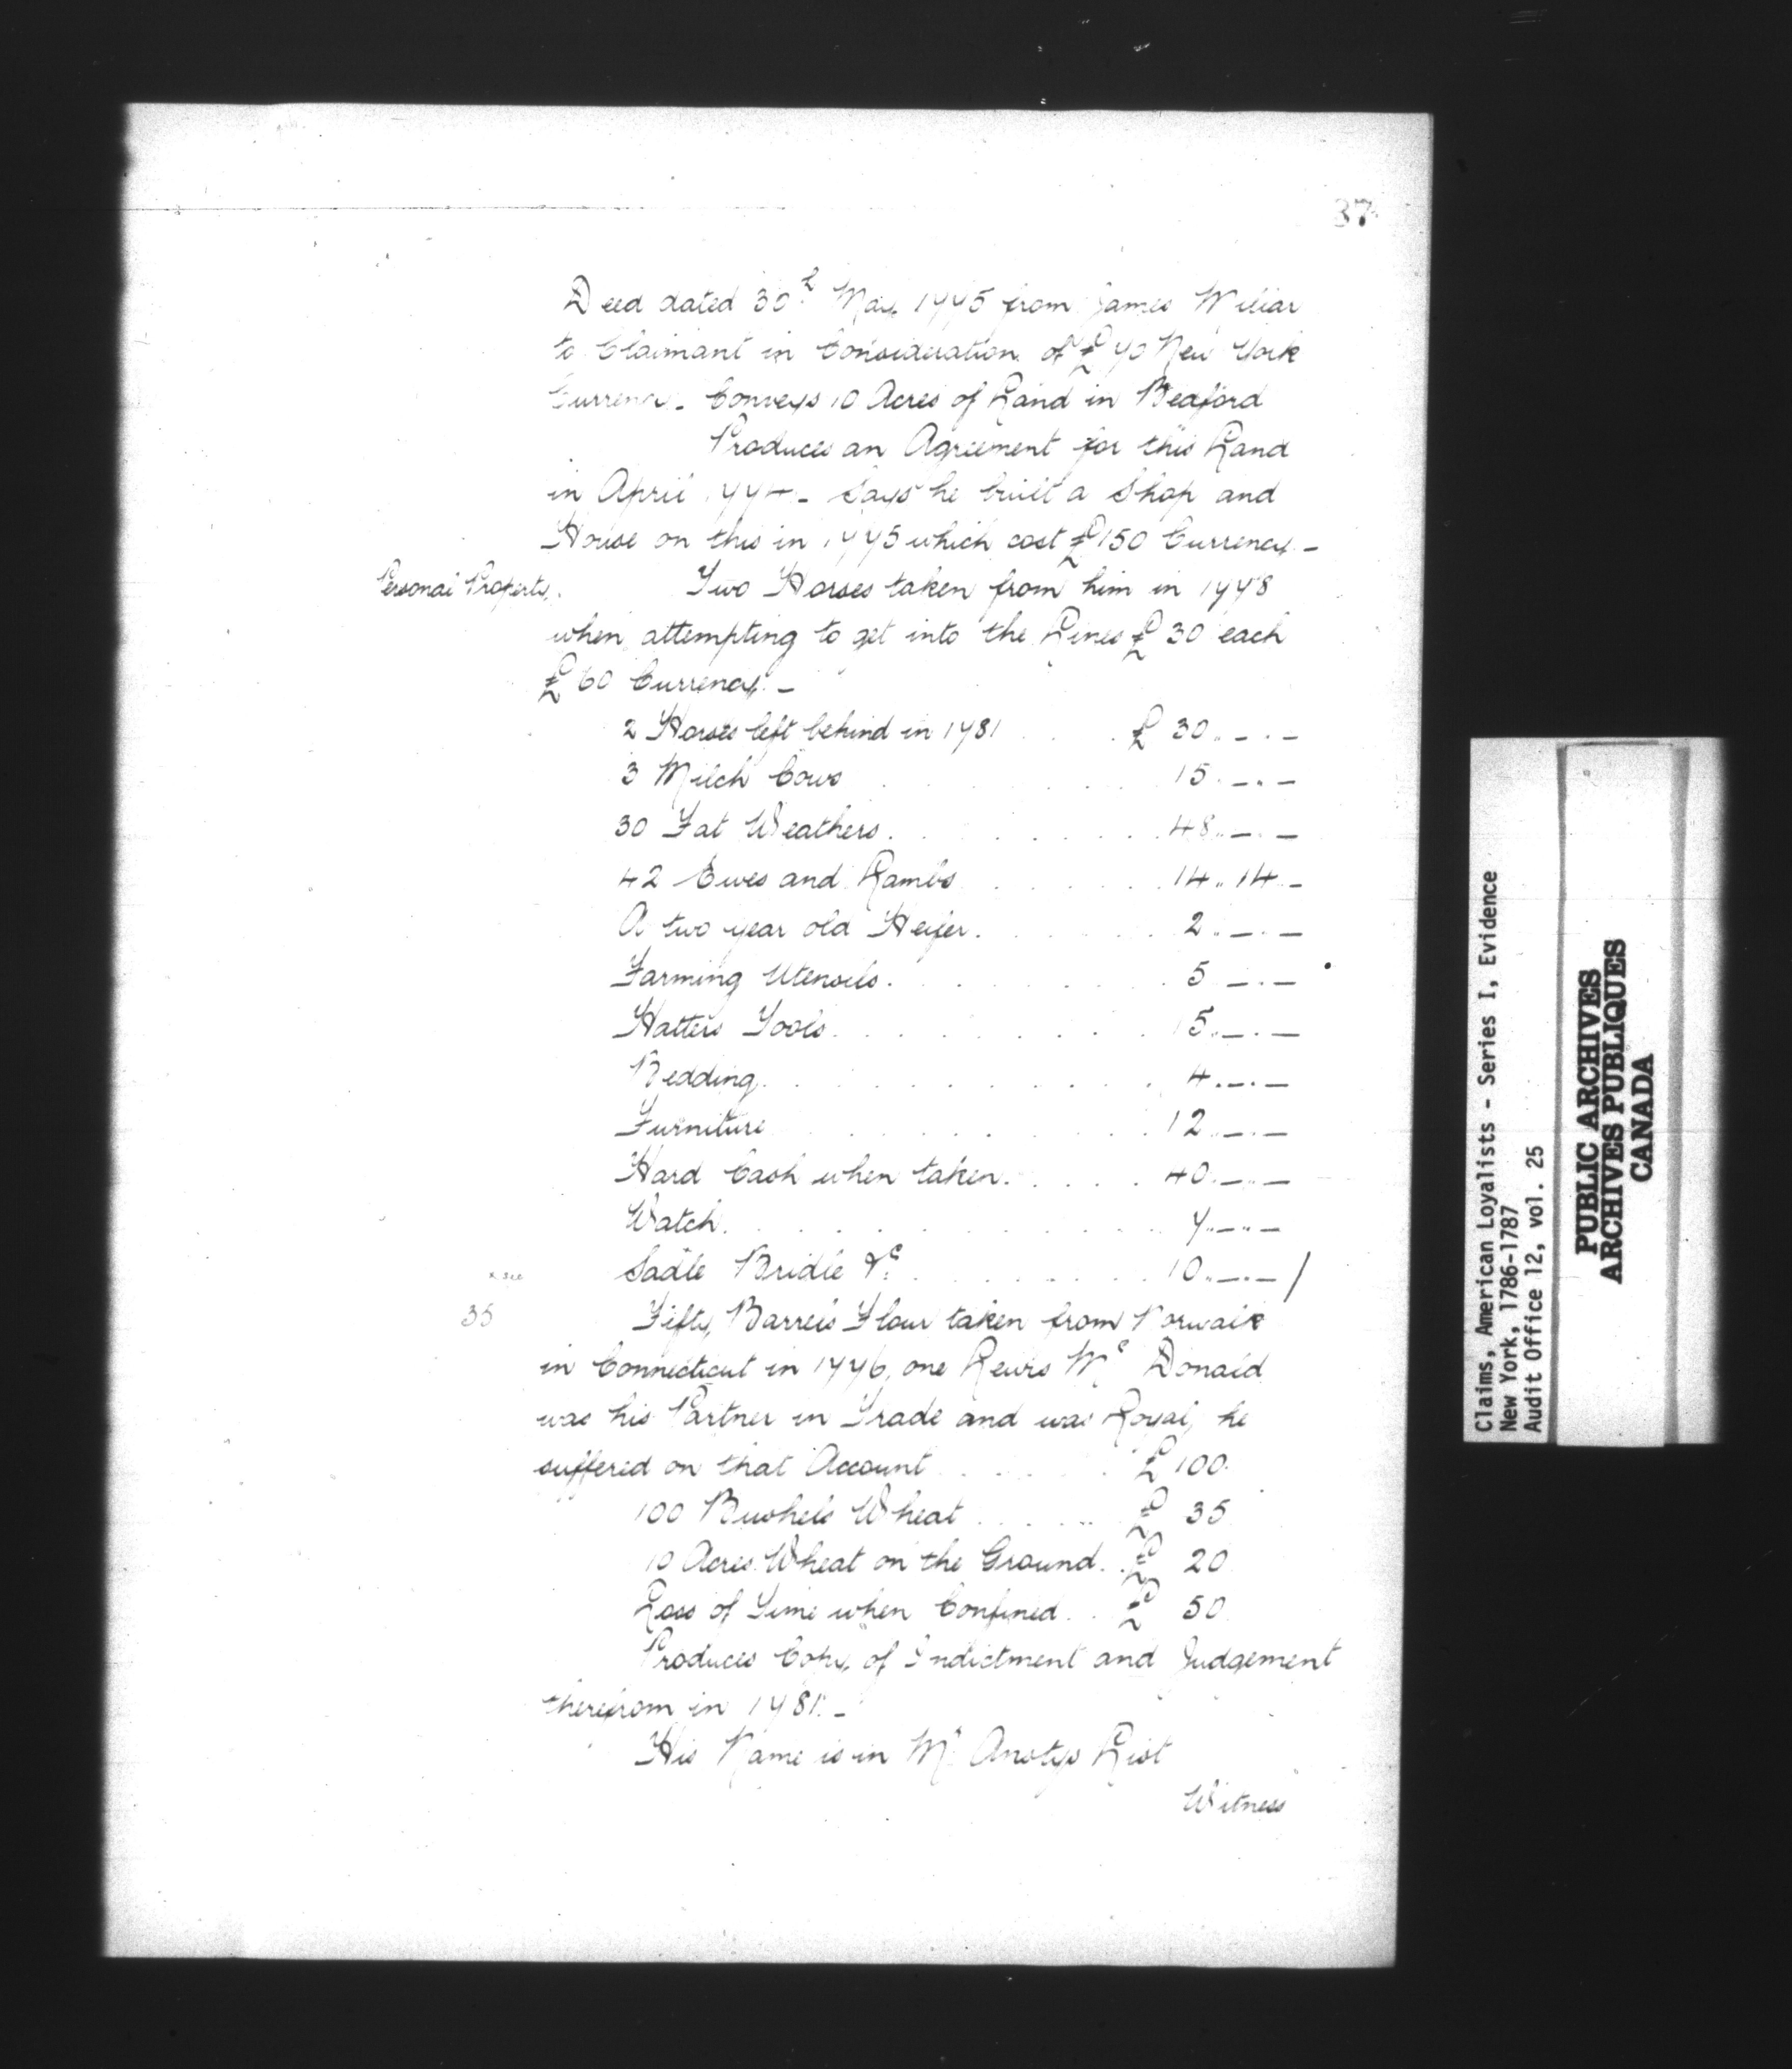 37
Deed dated 30th May 1775 from James Miliar
to Claimant in Consideration of £70 New York
Currency - Conveys 10 Acres of Land in Bedford
Produces an Agreement for this Land
in April 1774 - Says he built a Shop and
House on this in 1775 which cost £150 Currency -
Personal Property. Two Horses taken from him in 1778
when attempting to get into the Lines £30 each
£60 Currency. -
2 Horses left behind in 1781 . . . £ 30 .. - . -
3 Milch Cows . . . 15 . - .. -
30 Fat Weathers . . . 48 .. - . -
42 Ewes and Lambs . . . 14 .. 14 . -
A two year old Heifer . . . 2 .. - . -
Farming Utensils . . . 5 - . -
Hatters Tools . . . 15 .. - . -
Bedding . . . 4 . - . -
Furniture . . . 12 .. - . -
Hard Cash when taken . . . 40 . - .. -
Watch . . . 7 .. - .. -
x see Sadle Bridle &c . . . 10 .. - . - /
35 Fifty Barrels Flour taken from Norwalk
in Connecticut in 1776, one Lewis Mc Donald
was his Partner in Trade and was Loyal, he
suffered on that Account . . . £ 100.
100 Bushels Wheat . . . £ 35
10 Acres Wheat on the Ground . . £ 20
Loss of Time when Confined . . £ 50
Produces Copy of Indictment and Judgement
therefrom in 1781. -
His Name is in Mr Anstys List
Witness
Claims, American Loyalists - Series I, Evidence
New York, 1786-1787
Audit Office 12, vol. 25
PUBLIC ARCHIVES
ARCHIVES PUBLIQUES
CANADA